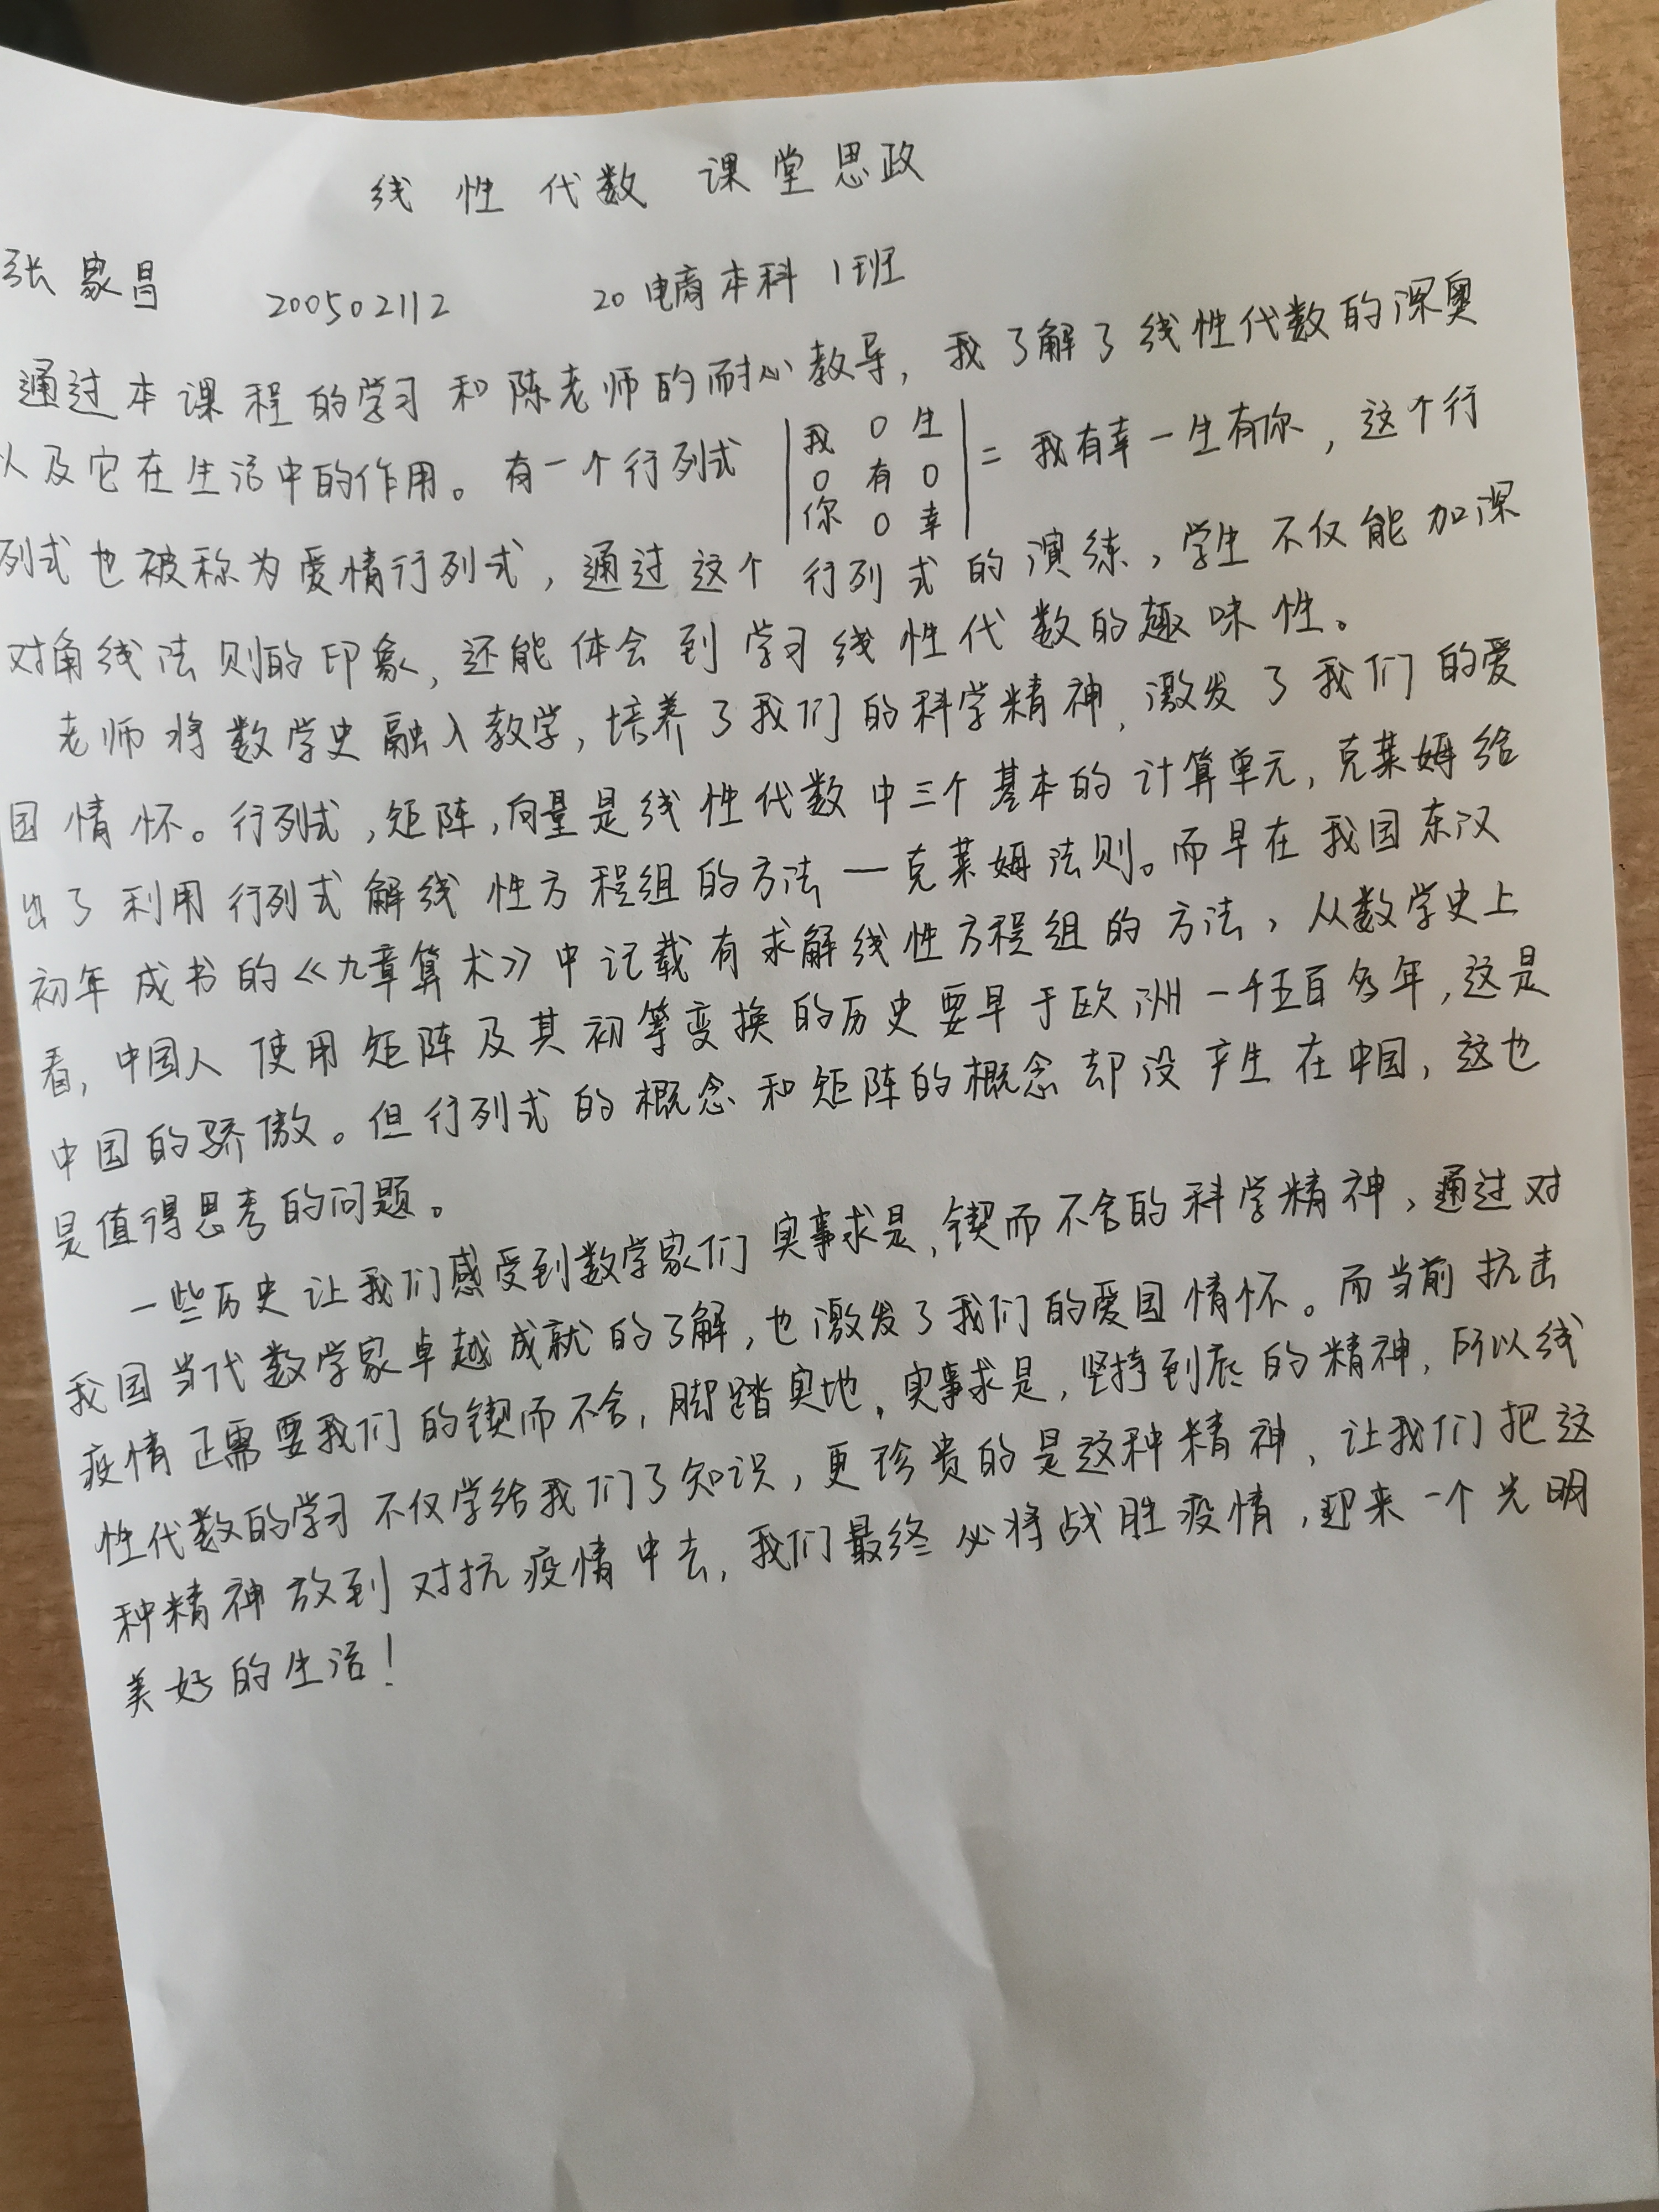 线性代数 课堂思政
张家昌 200502112 20电商本科1班
通过本课程的学习和陈老师的耐心教导，我了解了线性代数的深奥
以及它在生活中的作用。有一个行列式 |我 0 生| = 我有幸一生有你，这个行
|0 有 0|
|你 0 幸|
列式也被称为爱情行列式，通过这个行列式的演练，学生不仅能加深
对角线法则的印象，还能体会到学习线性代数的趣味性。
老师将数学史融入教学，培养了我们的科学精神，激发了我们的爱
国情怀。行列式，矩阵，向量是线性代数中三个基本的计算单元，克莱姆给
出了利用行列式解线性方程组的方法—克莱姆法则。而早在我国东汉
初年成书的《九章算术》中记载有求解线性方程组的方法，从数学史上
看，中国人使用矩阵及其初等变换的历史要早于欧洲一千五百多年，这是
中国的骄傲。但行列式的概念和矩阵的概念却没产生在中国，这也
是值得思考的问题。
一些历史让我们感受到数学家们实事求是，锲而不舍的科学精神，通过对
我国当代数学家卓越成就的了解，也激发了我们的爱国情怀。而当前抗击
疫情正需要我们的锲而不舍，脚踏实地，实事求是，坚持到底的精神，所以线
性代数的学习不仅学给我们了知识，更珍贵的是这种精神，让我们把这
种精神放到对抗疫情中去，我们最终必将战胜疫情，迎来一个光明
美好的生活！